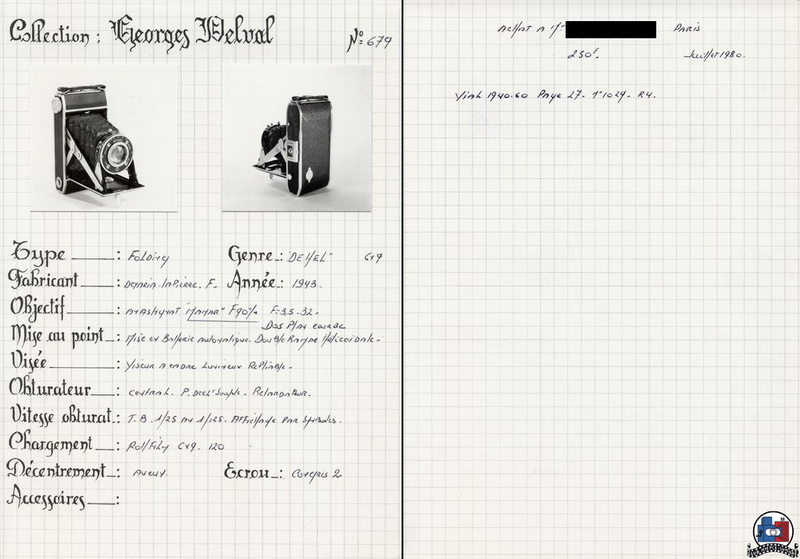 Collection : Georges Delval
N° 679
Type : Folding Genre : DEHEL" 6x9
Fabricant : Demaria Lapierre. F. Année : 1943.
Objectif : Anastigmat "MANAR" F90% F=3,5-32.
Dos Plan courbe
Mise au point : Mise en Batterie automatique. Double Rampe Hélicoidale.
Visée : Viseur a cadre Lumineux Repliable.
Obturateur : central. P. Decl' Souple. Retardateur.
Vitesse obturat. : T.B. 1/25 au 1/125. Affichage Par Symboles.
Chargement : Roll Film 6x9. 120
Décentrement : Aucun. Ecrou : Congrès 2
Accessoires :
Achat a Mr Paris
250F. Juillet 1980.
Vial 1940.60 Page 27. N°1029. R4.